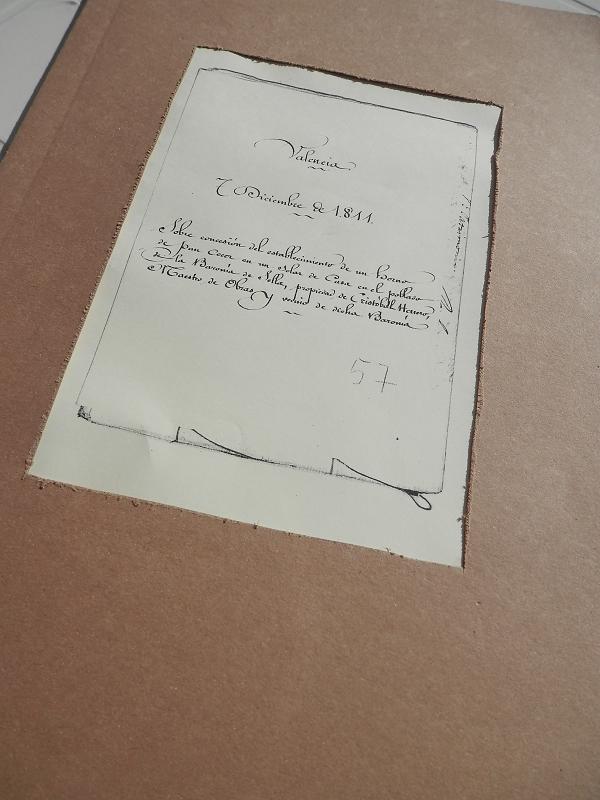 Valencia
7 Diciembre de 1.811.
Sobre concesión del establecimiento de un Horno
de Pan Cocer en un Solar de Casa en el poblado
de la Baronía de Sella, propiedad de Cristóbal
Maestro de Obras, y vecino de dicha Baronía
57